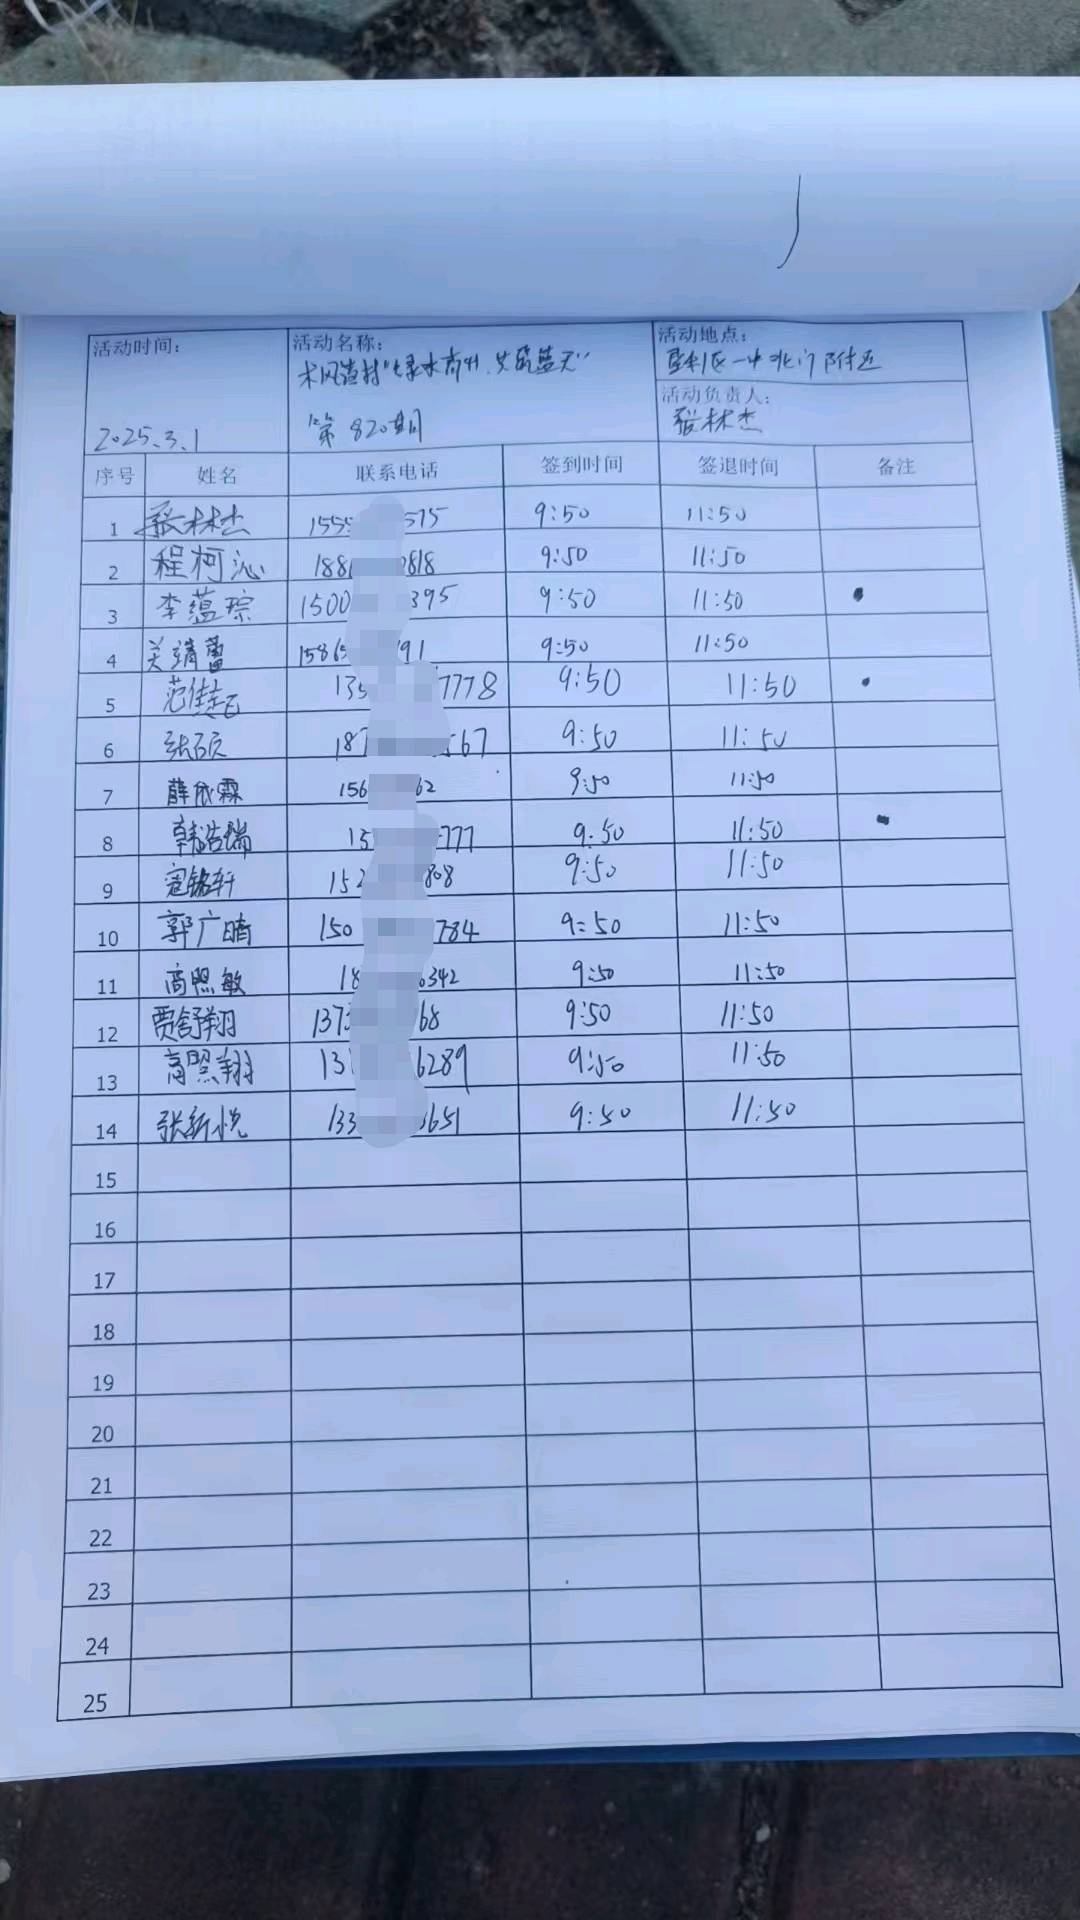 活动时间：
2025.3.1
活动名称：
木风渣村"绿水青州、共筑蓝天"
第820期
活动地点：
一中北门附近
活动负责人：
张林杰
序号 姓名 联系电话 签到时间 签退时间 备注
1 张林杰 1555 575 9:50 11:50
2 程柯沁 188 0818 9:50 11:50
3 李蕴琮 1500 395 9:50 11:50 •
4 关靖蕾 1586 91 9:50 11:50
5 范佳起 135 7778 9:50 11:50 •
6 张硕 187 567 9:50 11:50
7 薛依霖 156 62 9:50 11:50
8 韩浩瑞 15 777 9:50 11:50 •
9 寇铭轩 152 808 9:50 11:50
10 郭广晴 150 784 9:50 11:50
11 高熙敏 18 6342 9:50 11:50
12 贾舒翔 1373 68 9:50 11:50
13 高熙翔 13 6289 9:50 11:50
14 张新悦 133 651 9:50 11:50
15
16
17
18
19
20
21
22
23
24
25